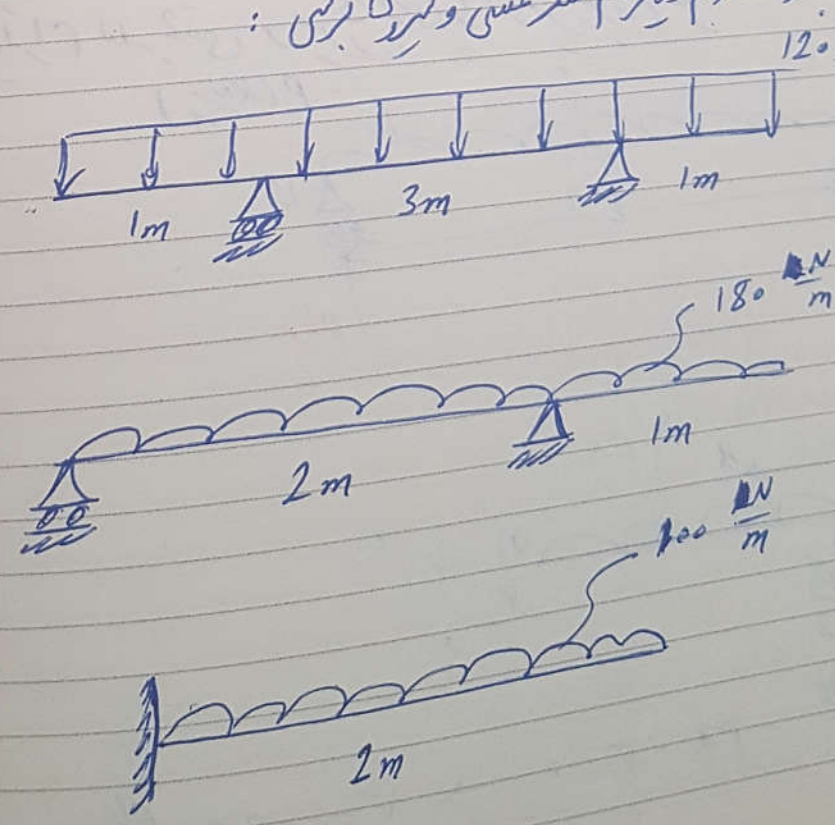 خمشی و نیروی برشی :
120
1m 3m 1m
180 N/m
2m 1m
100 N/m
2m